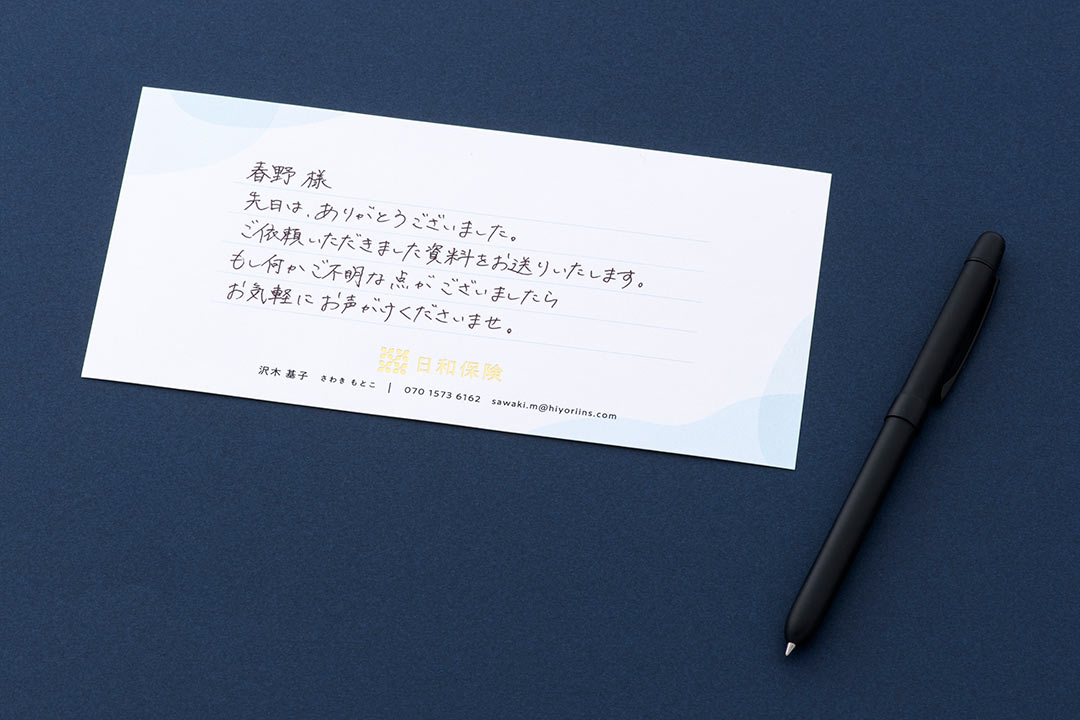 春野 様
先日は、ありがとうございました。
ご依頼いただきました資料をお送りいたします。
もし何かご不明な点がございましたら
お気軽にお声がけくださいませ。
日和保険
沢木 基子 さわき もとこ | 070 1573 6162 sawaki.m@hiyoriins.com